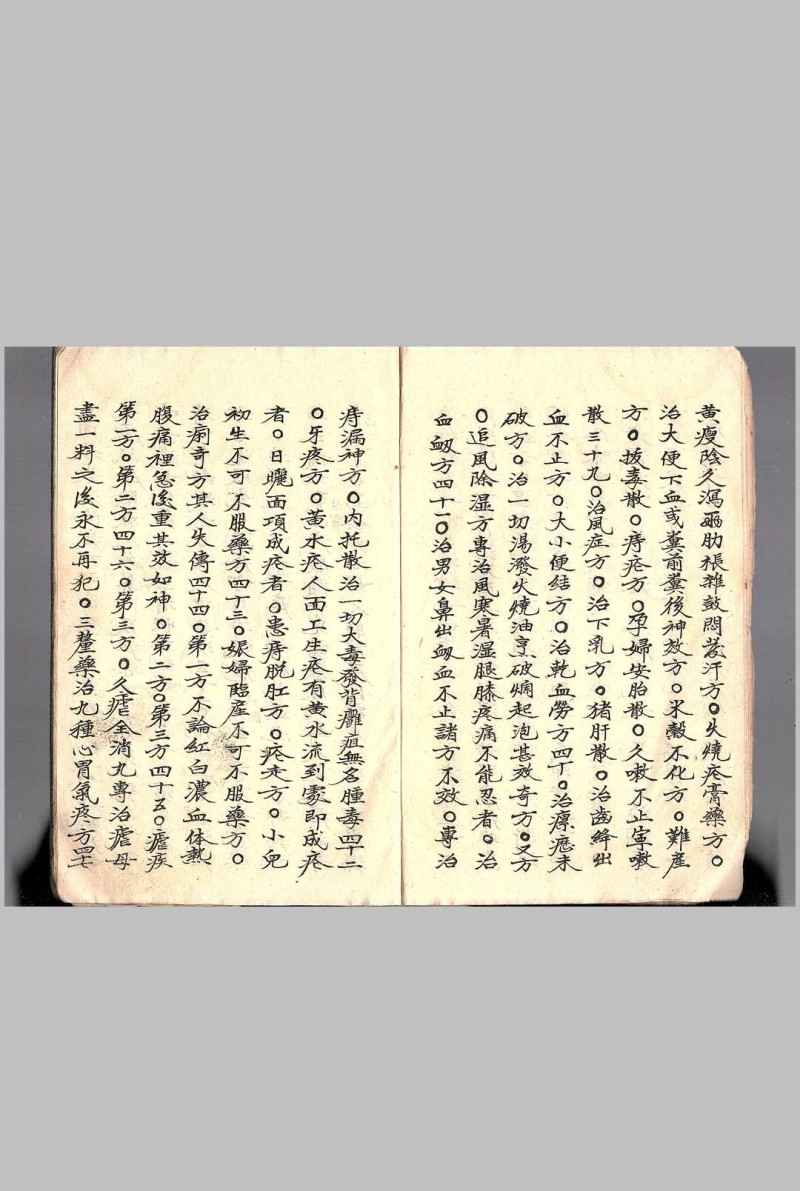 黃瘦陰久瀉兩肋棖雜鼓悶發汗方○火燒疙膏藥方○
治大便下血或糞前糞後神效方○米穀不化方○難產
方○拔毒散○痔疙方○孕婦安胎散○久嗽不止寧嗽
散三十九○治風症方○治下乳方○猪肝散○治齒縫出
血不止方○大小便結方○治乾血勞方四十○治瘰癧未
破方○治一切湯潑火燒油烹破爛起泡甚效奇方○又方
○追風除湿方專治風寒暑湿腿膝疼痛不能忍者○治
血衂方四十一○治男女鼻出衂血不止諸方不效○專治
痔漏神方○內托散治一切大毒發背癰疽無名腫毒四十二
○牙疼方○黃水疙人面上生疙有黃水流到處即成疙
者○日曬面項成疙者○患痔脫肛方○疙夾方○小兒
初生不可不服藥方四十三○娠婦臨產不可不服藥方○
治痢奇方其人失傳四十四○第一方不論紅白濃血体熱
腹痛裡急後重其效如神○第二方○第三方四十五○瘧疾
第一方○第二方四十六○第三方○久瘧全消丸專治瘧母
盡一料之後永不再犯○三釐藥治九種心胃氣疼方四十七